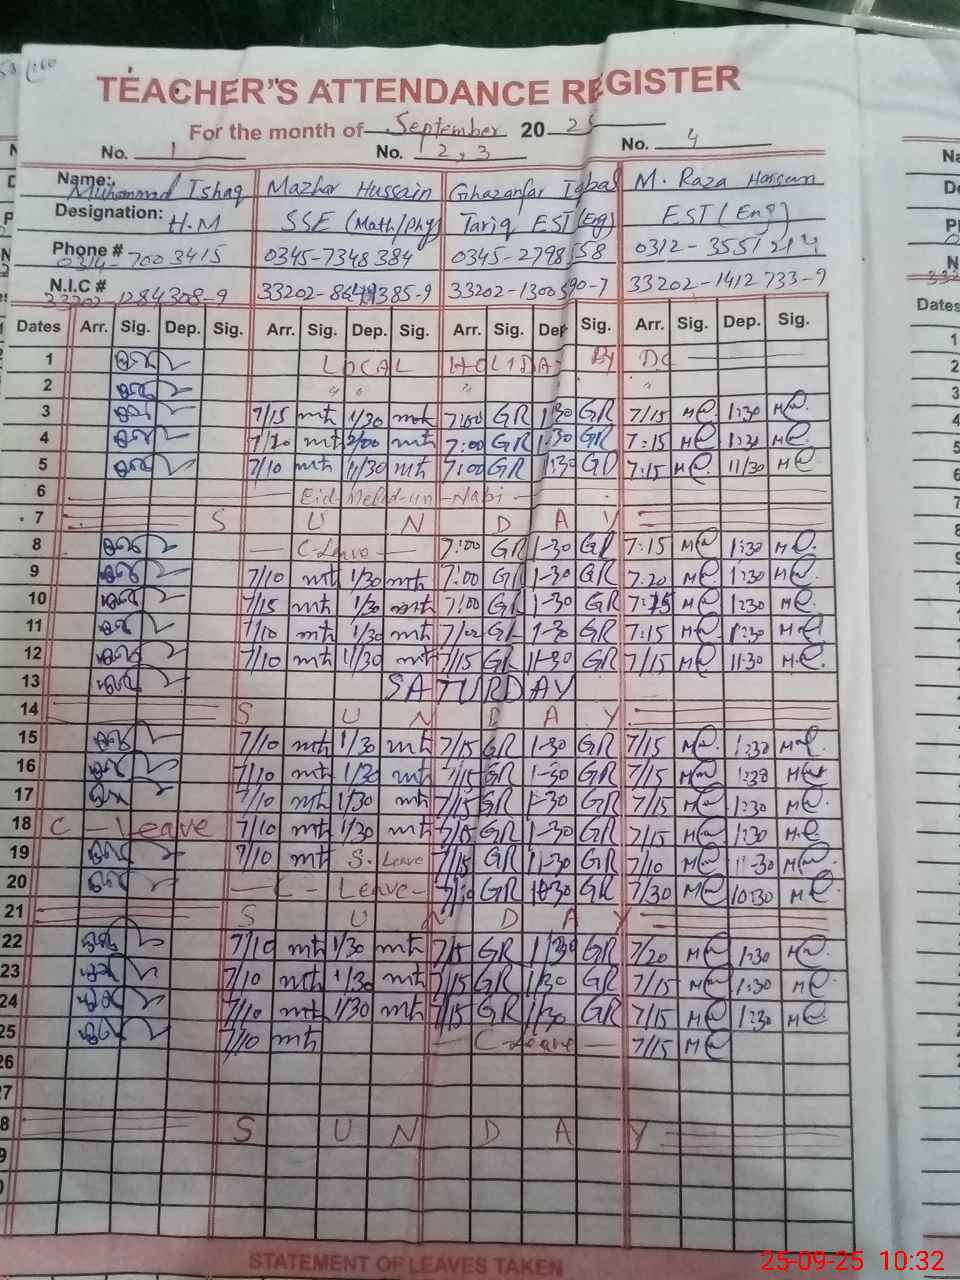 TEACHER'S ATTENDANCE REGISTER
For the month of September 20 25
No. 1 No. 2,3 No. 4
Name: Muhammad Ishaq Mazhar Hussain Ghazanfar Iqbal M. Raza Hassan
Designation: H.M SSE (Math/Phy) Tariq EST (Eng) EST (Eng)
Phone # 0314-7003415 0345-7348384 0345-2798558 0312-3551
N.I.C # 33202-1284308-9 33202- 385-9 33202-1300590-7 33202-1412733-9
Dates Arr. Sig. Dep. Sig. Arr. Sig. Dep. Sig. Arr. Sig. Dep. Sig. Arr. Sig. Dep. Sig.
1 LOCAL HOLIDAY By DC
2 " " " "
3 7/15 mt 1/30 mt 7:00 GR 1:30 GR 7/15 1:30
4 7/10 mt 2/00 mt 7:00 GR 1:30 GR 7:15 1:30
5 7/10 mt 11/30 mt 7:00 GR 11:30 GR 7:15 11/30
6 Eid Melad-un-Nabi
7 S U N D A Y
8 C-Leave 7:00 GR 1-30 GR 7:15 1:30
9 7/10 mt 1/30 mt 7:00 GR 1-30 GR 7:20 1:30
10 7/15 mt 1/30 mt 7:00 GR 1-30 GR 7:15 1:30
11 7/10 mt 1/30 mt 7/00 GR 1-30 GR 7:15 1:30
12 7/10 mt 11/30 mt 7/15 GR 11-30 GR 7/15 11-30
13 SATURDAY
14 S U N D A Y
15 7/10 mt 1/30 mt 7/15 GR 1-30 GR 7/15 1:30
16 7/10 mt 1/30 mt 7/15 GR 1-30 GR 7/15 1:30
17 7/10 mt 1/30 mt 7/15 GR 1-30 GR 7/15 1:30
18 C-Leave 7/10 mt 1/30 mt 7/15 GR 1-30 GR 7/15 1:30
19 7/10 mt S. Leave 7/15 GR 11-30 GR 7/10 11-30
20 C- Leave GR 10:30 GR 7/30 10:30
21 S U N D A Y
22 7/10 mt 1/30 mt 7/15 GR 1/30 GR 7/20 1:30
23 7/10 mt 1/30 mt 7/15 GR 1/30 GR 7/15 1:30
24 7/10 mt 1/30 mt 7/15 GR 1/30 GR 7/15 1:30
25 7/10 mt C-Leave 7/15
26
27
8 S U N D A Y
9
0
STATEMENT OF LEAVES TAKEN
25-09-25 10:32